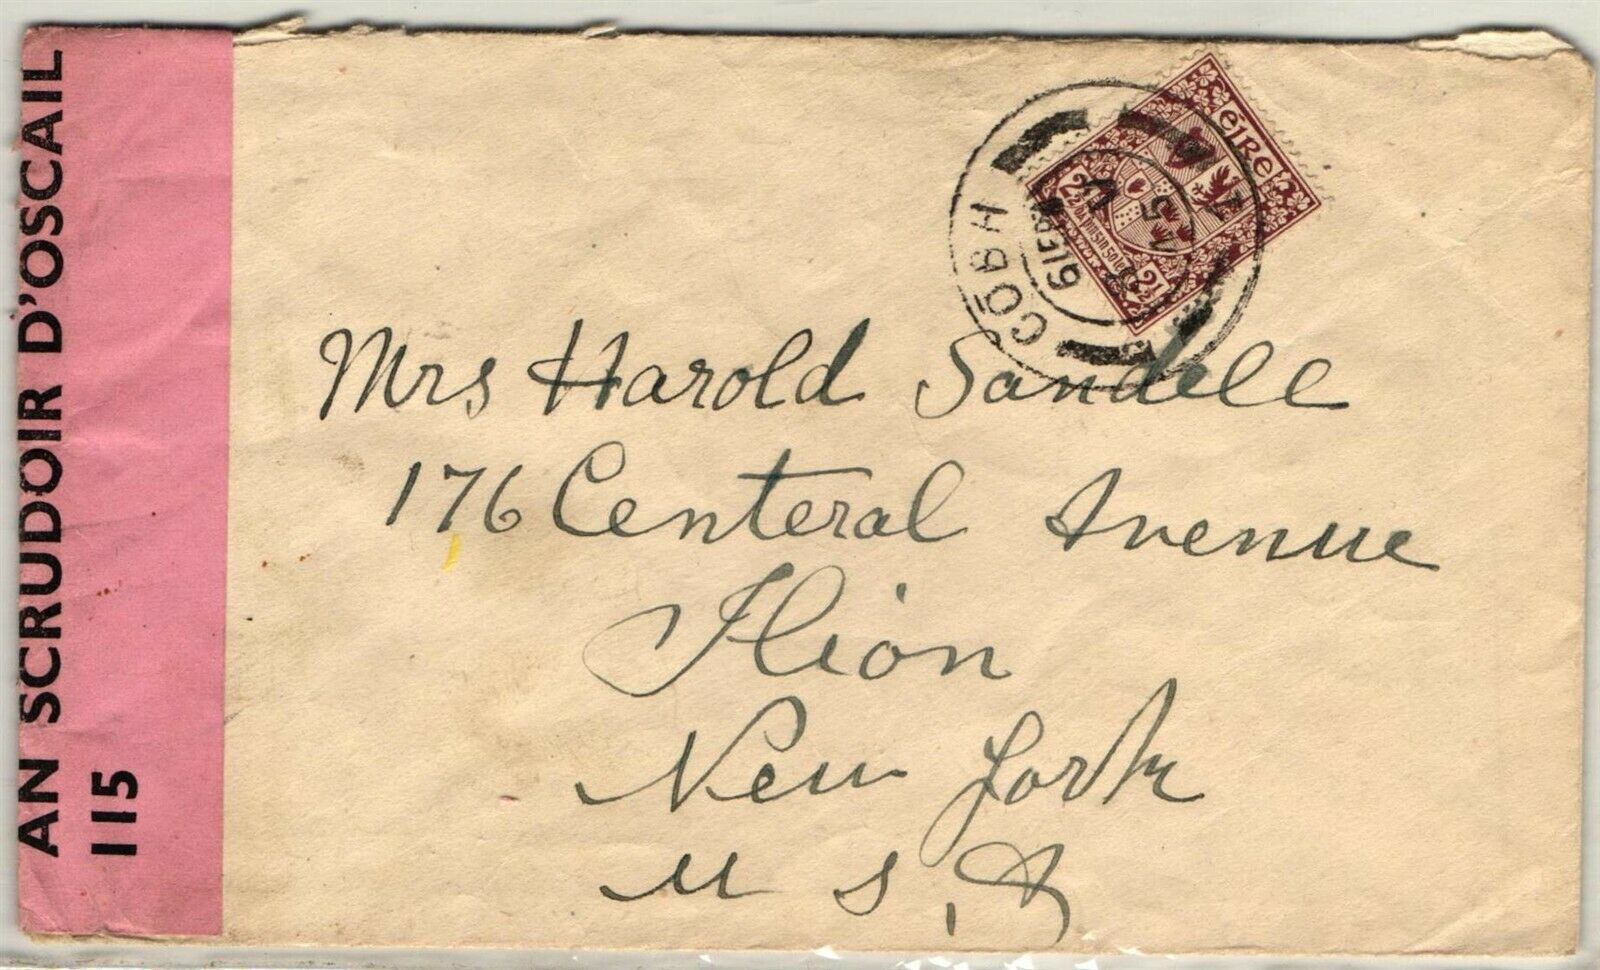 AN SCRUDOIR D'OSCAIL
115
éire
2½ 2½
CÓBH
Mrs Harold Sandell
176 Centeral Avenue
Ilion
New York
U S A